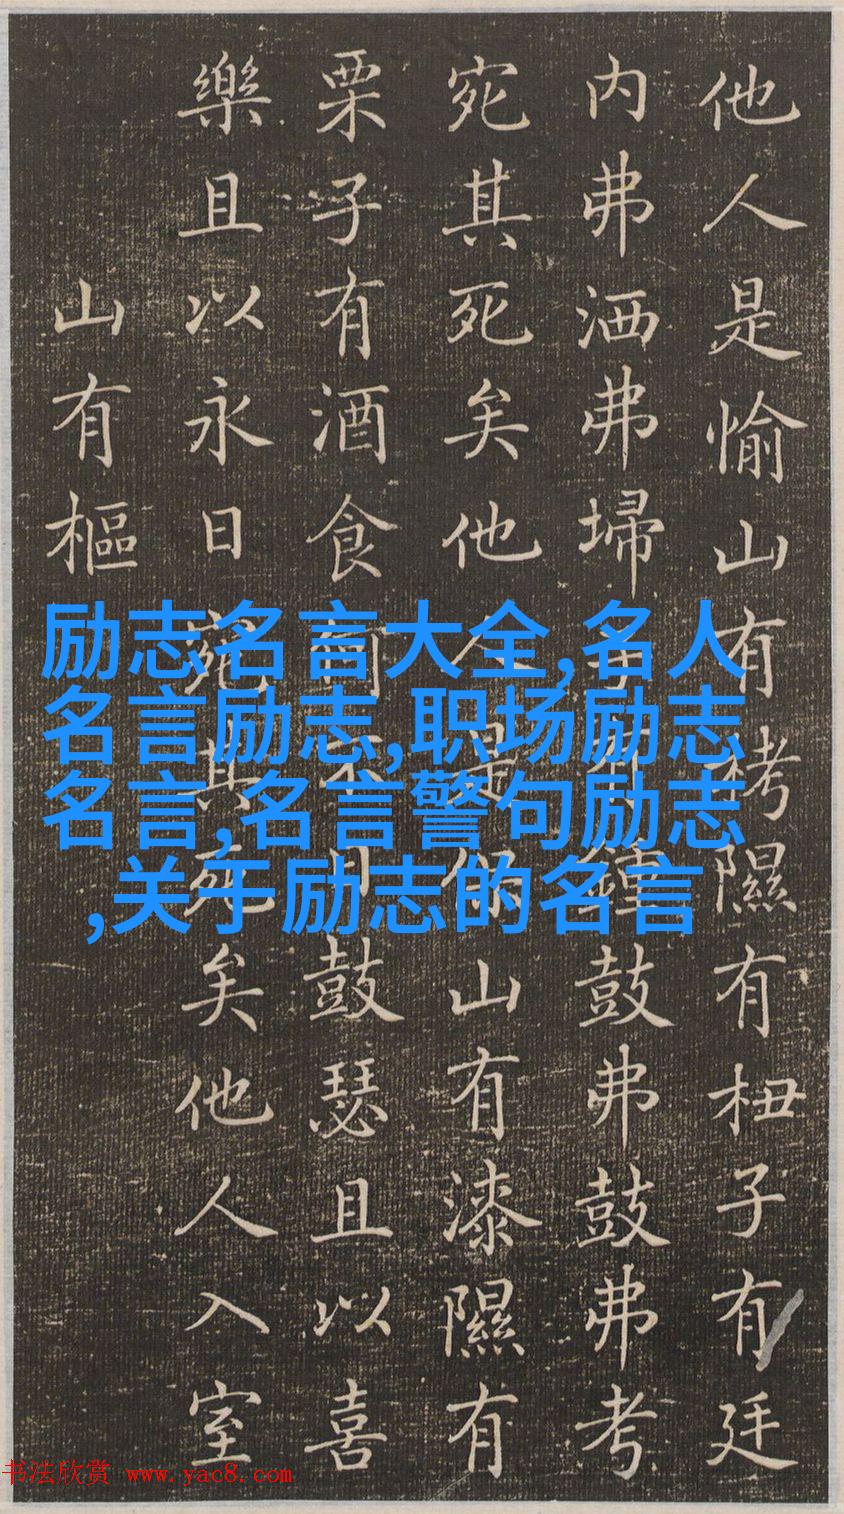 他人是愉山有栲隰有杻子有廷
内弗洒弗埽子有鍾鼓弗鼓弗考
宛其死矣他人是保山有漆隰有
栗子有酒食何不日鼓瑟且以喜
樂且以永日宛其死矣他人入室
山有樞
励志名言大全,名人
名言励志,职场励志
名言,名言警句励志
,关于励志的名言
书法欣赏 www.yac8.com